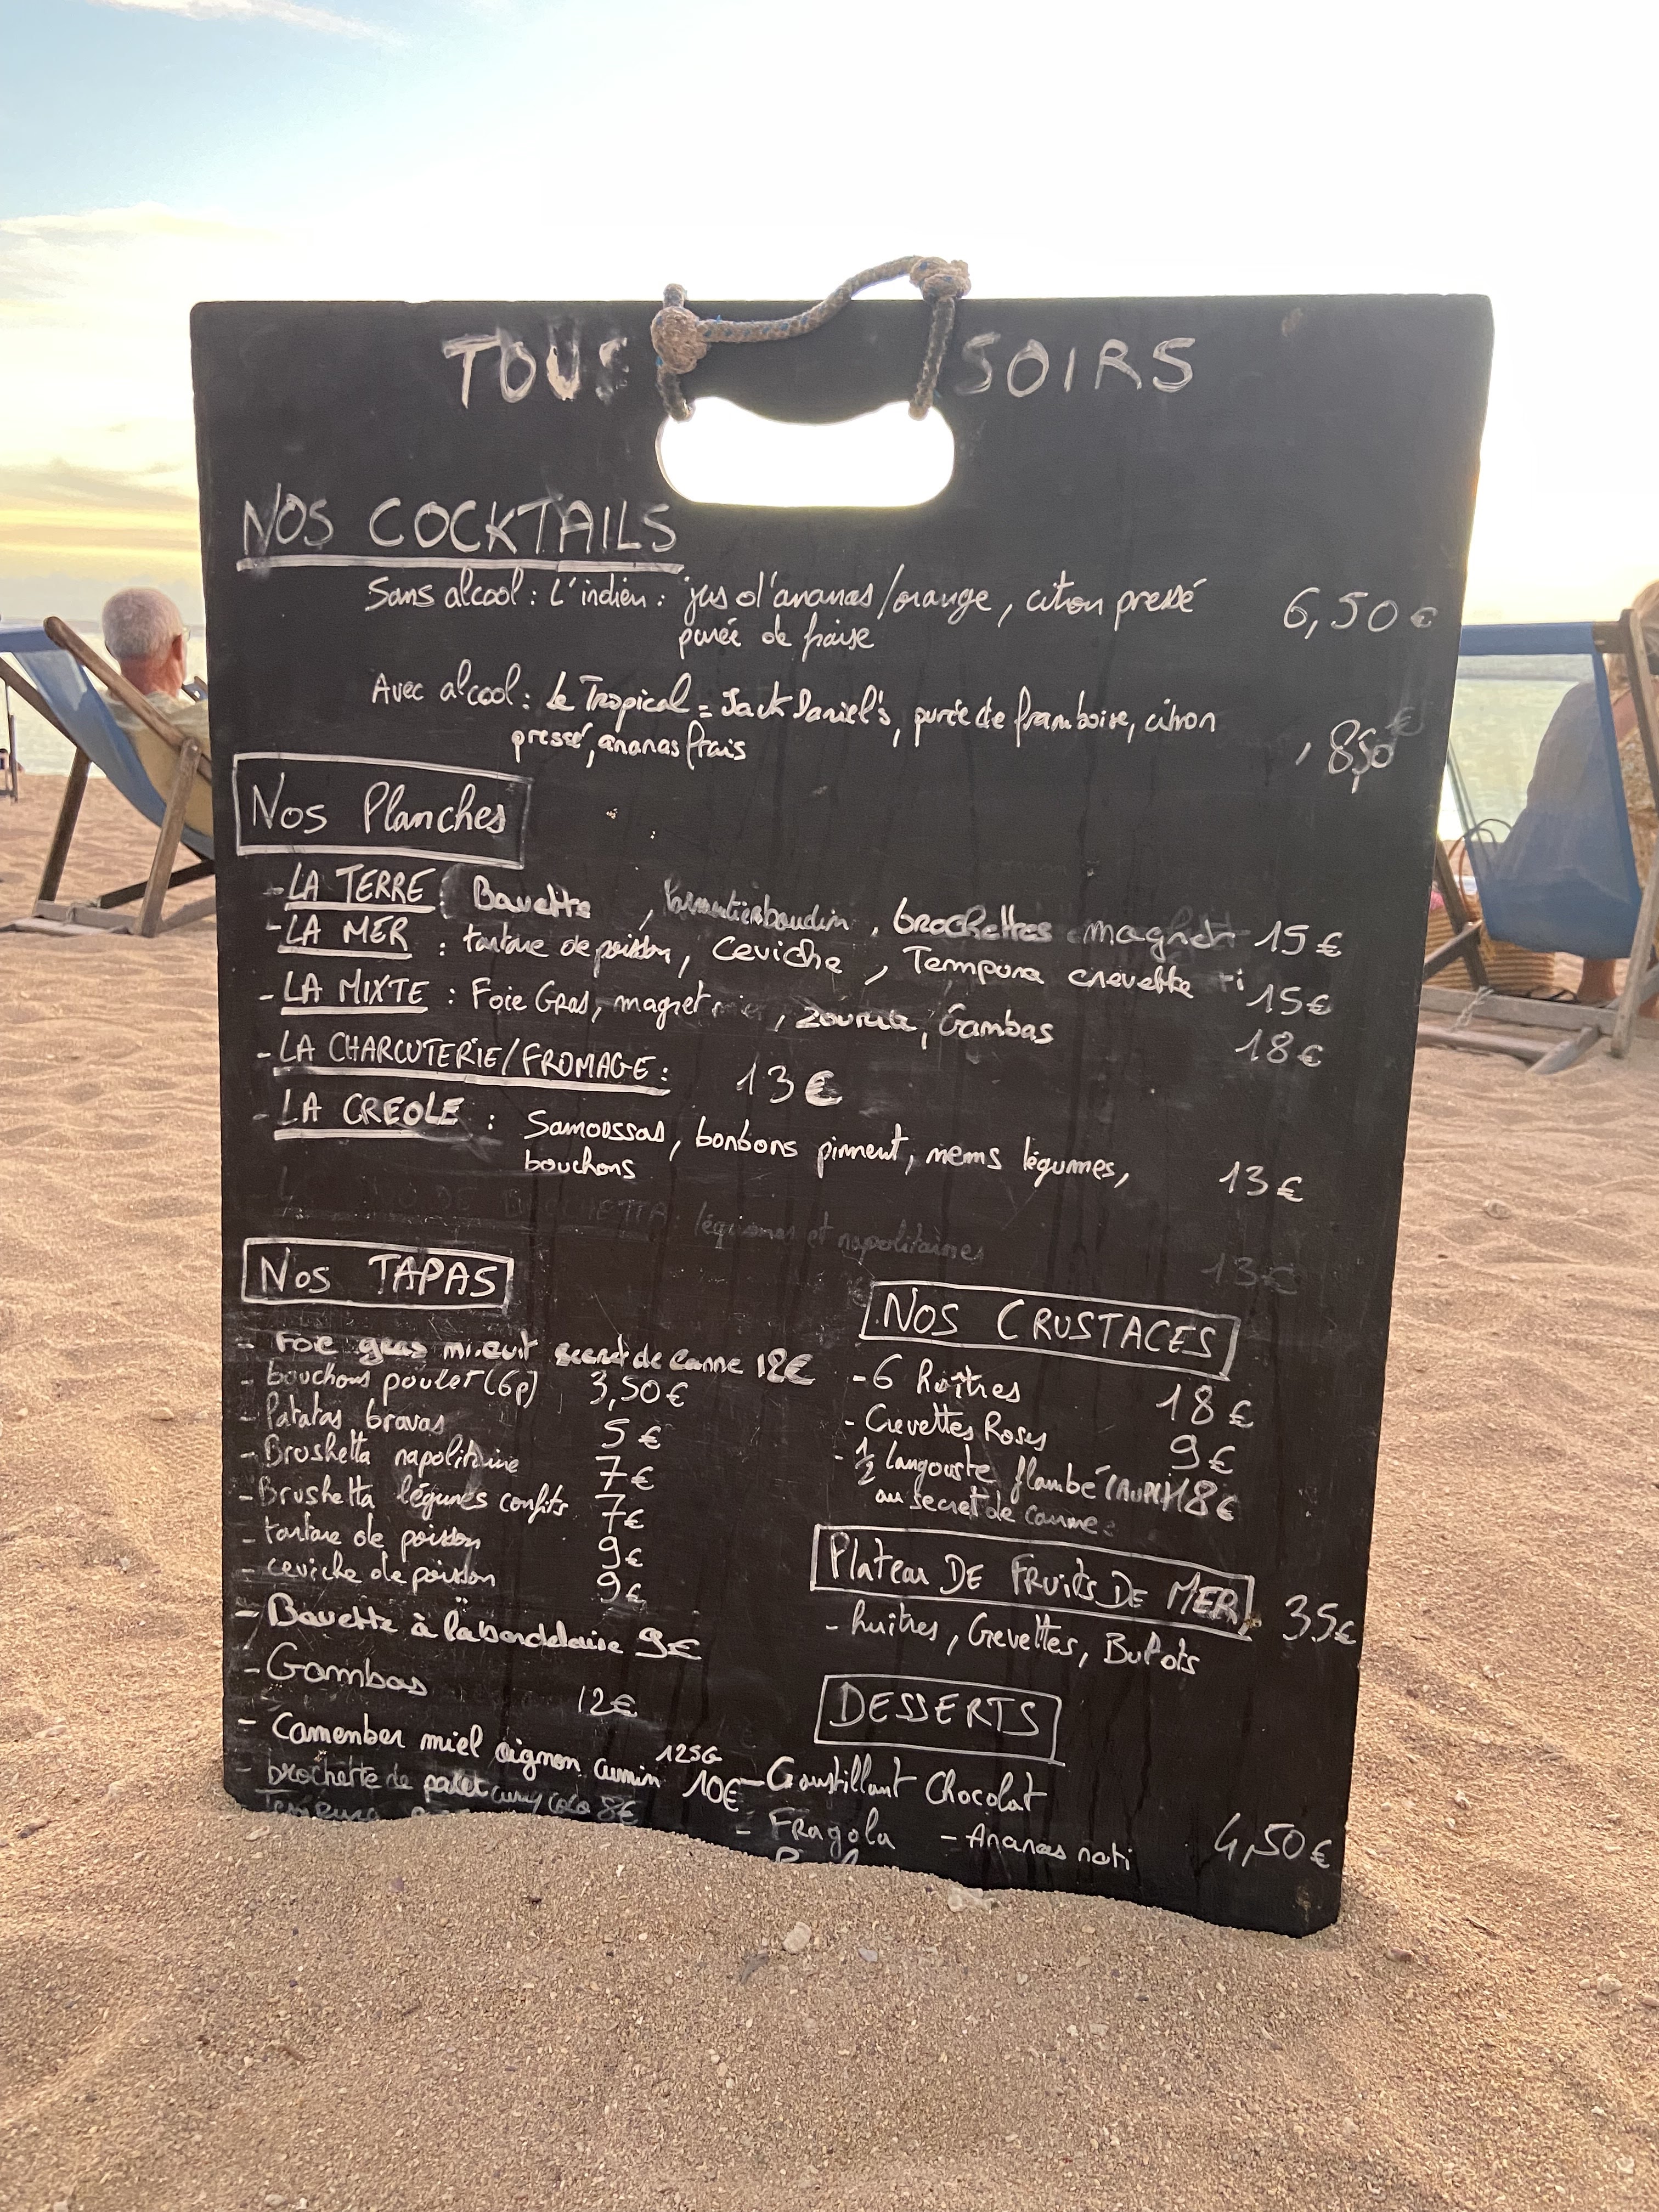 TOUS SOIRS
NOS COCKTAILS
Sans alcool : L'indien : jus d'ananas/orange, citron pressé 6,50€
purée de fraise
Avec alcool : Le Tropical = Jack Daniel's, purée de framboise, citron
pressé, ananas frais , 8,50€
Nos Planches
- LA TERRE : Bavette , boudin, brochettes magret 15€
- LA MER : tartare de poisson, Ceviche , Tempura crevette 15€
- LA MIXTE : Foie Gras, magret , zourite, Gambas 18€
- LA CHARCUTERIE/FROMAGE : 13€
- LA CREOLE : Samoussas, bonbons piment, nems légumes, 13€
bouchons
légumes et napolitaines 13€
Nos TAPAS
- Foie gras mi.cuit secret de canne 12€
- bouchons poulet (6p) 3,50€
- Patatas bravas 5€
- Brushetta napolitaine 7€
- Brushetta légumes confits 7€
- tartare de poisson 9€
- ceviche de poisson 9€
- Bavette à la bordelaise 9€
- Gambas 12€
- Camember miel oignon cumin 125G 10€
- brochette de curry coco 8€
NOS CRUSTACES
- 6 huîtres 18€
- Crevettes Roses 9€
- 1/2 langouste flambé 18€
au secret de canne
Plateau DE FRUITS DE MER 35€
- huîtres, Crevettes, Bulots
DESSERTS
- Croustillant Chocolat
- Fragola - Ananas roti 4,50€